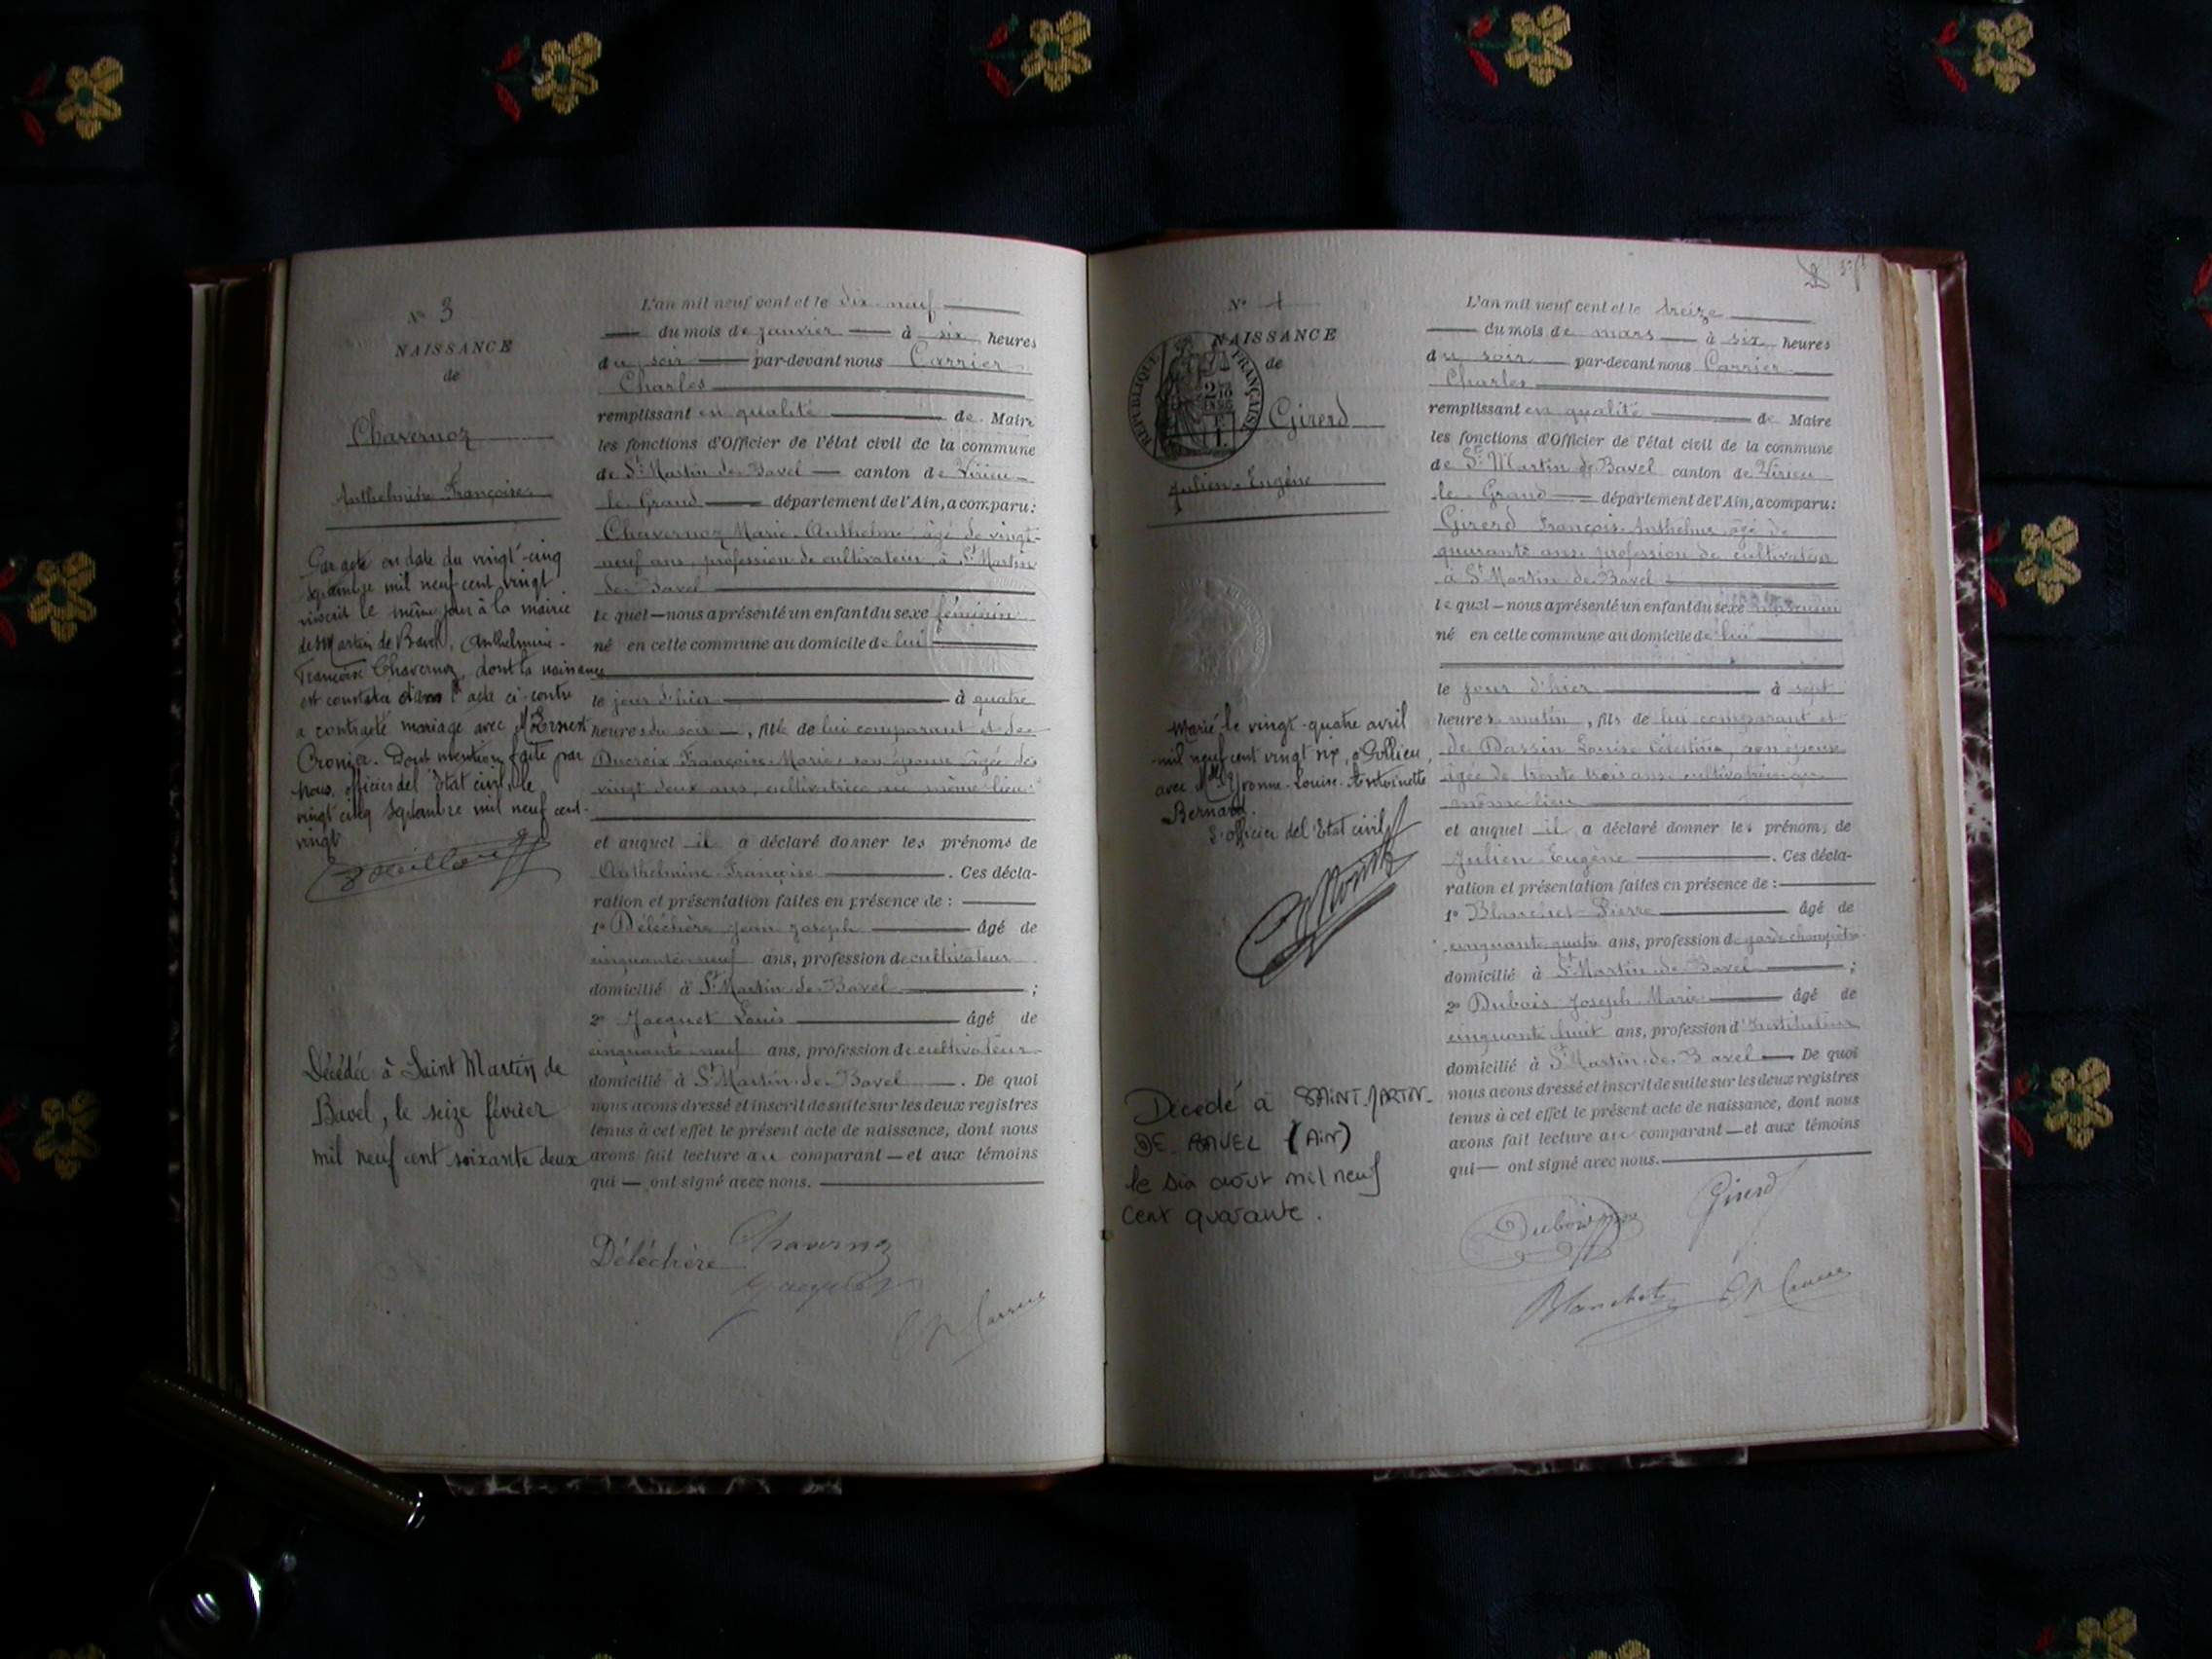 N° 3
NAISSANCE
de
Chavernoz
Anthelmine Françoise
Par acte en date du vingt-cinq
septembre mil neuf-cent vingt
inscrit le même jour à la mairie
de St Martin de Bavel, Anthelmine-
Françoise Chavernoz, dont la naissance
est constatée dans l'acte ci-contre
a contracté mariage avec Mr Ernest
Cronier. Dont mention faite par
nous, officier de l'Etat civil, le
vingt cinq septembre mil neuf cent-
vingt
Décédée à Saint Martin de
Bavel, le seize février
mil neuf cent soixante deux
L'an mil neuf cent et le dix-neuf
du mois de janvier à six heures
du soir par-devant nous Carrier
Charles
remplissant en qualité de Maire
les fonctions d'Officier de l'état civil de la commune
de St Martin de Bavel canton de Virieu
le Grand département de l'Ain, a comparu:
Chavernoz Marie-Anthelme âgé de vingt-
neuf ans, profession de cultivateur à St Martin
de Bavel
lequel nous a présenté un enfant du sexe féminin
né en cette commune au domicile de lui
le jour d'hier à quatre
heures du soir, fille de lui comparant et de
Ducroix Françoise Marie, son épouse âgée de
vingt deux ans, cultivatrice au même lieu
et auquel il a déclaré donner les prénoms de
Anthelmine Françoise. Ces décla-
ration et présentation faites en présence de :
1° Déléchère Jean Joseph âgé de
cinquante neuf ans, profession de cultivateur
domicilié à St Martin de Bavel ;
2° Jacquet Louis âgé de
cinquante neuf ans, profession de cultivateur
domicilié à St Martin de Bavel. De quoi
nous avons dressé et inscrit de suite sur les deux registres
tenus à cet effet le présent acte de naissance, dont nous
avons fait lecture au comparant et aux témoins
qui ont signé avec nous.
Déléchère Chavernoz
Jacquet
Carrier
N° 4
NAISSANCE
de
RÉPUBLIQUE FRANÇAISE
Girerd
Julien-Eugène
Marié le vingt-quatre avril
mil neuf cent vingt six, à Sollieu,
avec Mlle Yvonne-Louise-Antoinette
Bernard.
L'officier de l'Etat civil
Décédé à SAINT-MARTIN-
DE BAVEL (AIN)
le six août mil neuf
cent quarante.
L'an mil neuf cent et le treize
du mois de mars à six heures
du soir par-devant nous Carrier
Charles
remplissant en qualité de Maire
les fonctions d'Officier de l'état civil de la commune
de St Martin de Bavel canton de Virieu
le Grand département de l'Ain, a comparu:
Girerd François-Anthelme âgé de
quarante ans, profession de cultivateur
à St Martin de Bavel
lequel nous a présenté un enfant du sexe masculin
né en cette commune au domicile de lui
le jour d'hier à sept
heures matin, fils de lui comparant et
de Dassin Louise Célestine, son épouse
âgée de trente trois ans cultivatrice au
même lieu
et auquel il a déclaré donner les prénoms de
Julien Eugène. Ces décla-
ration et présentation faites en présence de :
1° Blanchet Pierre âgé de
cinquante quatre ans, profession de garde champêtre
domicilié à St Martin de Bavel ;
2° Dubois Joseph Marie âgé de
cinquante huit ans, profession d'Instituteur
domicilié à St Martin de Bavel De quoi
nous avons dressé et inscrit de suite sur les deux registres
tenus à cet effet le présent acte de naissance, dont nous
avons fait lecture au comparant et aux témoins
qui ont signé avec nous.
Dubois Girerd
Blanchet Carrier